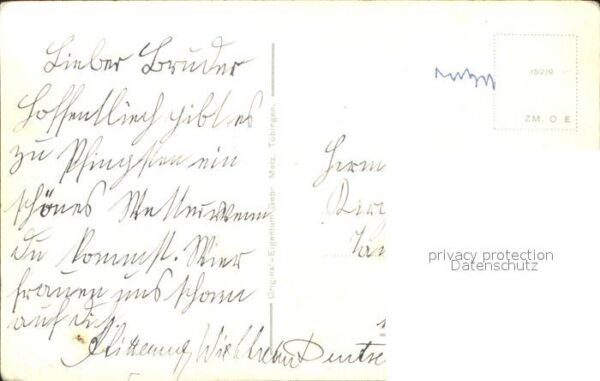 Lieber Bruder
Hoffentliech gibt es
zu Pfingsten ein
schönes Wetter wenn
du kommst. Wier
frauen uns schon
auf dich
Wielhelm
Original-Eigentum Gebr. Metz, Tübingen.
152/9
ZM. O E
Herrn
privacy protection
Datenschutz